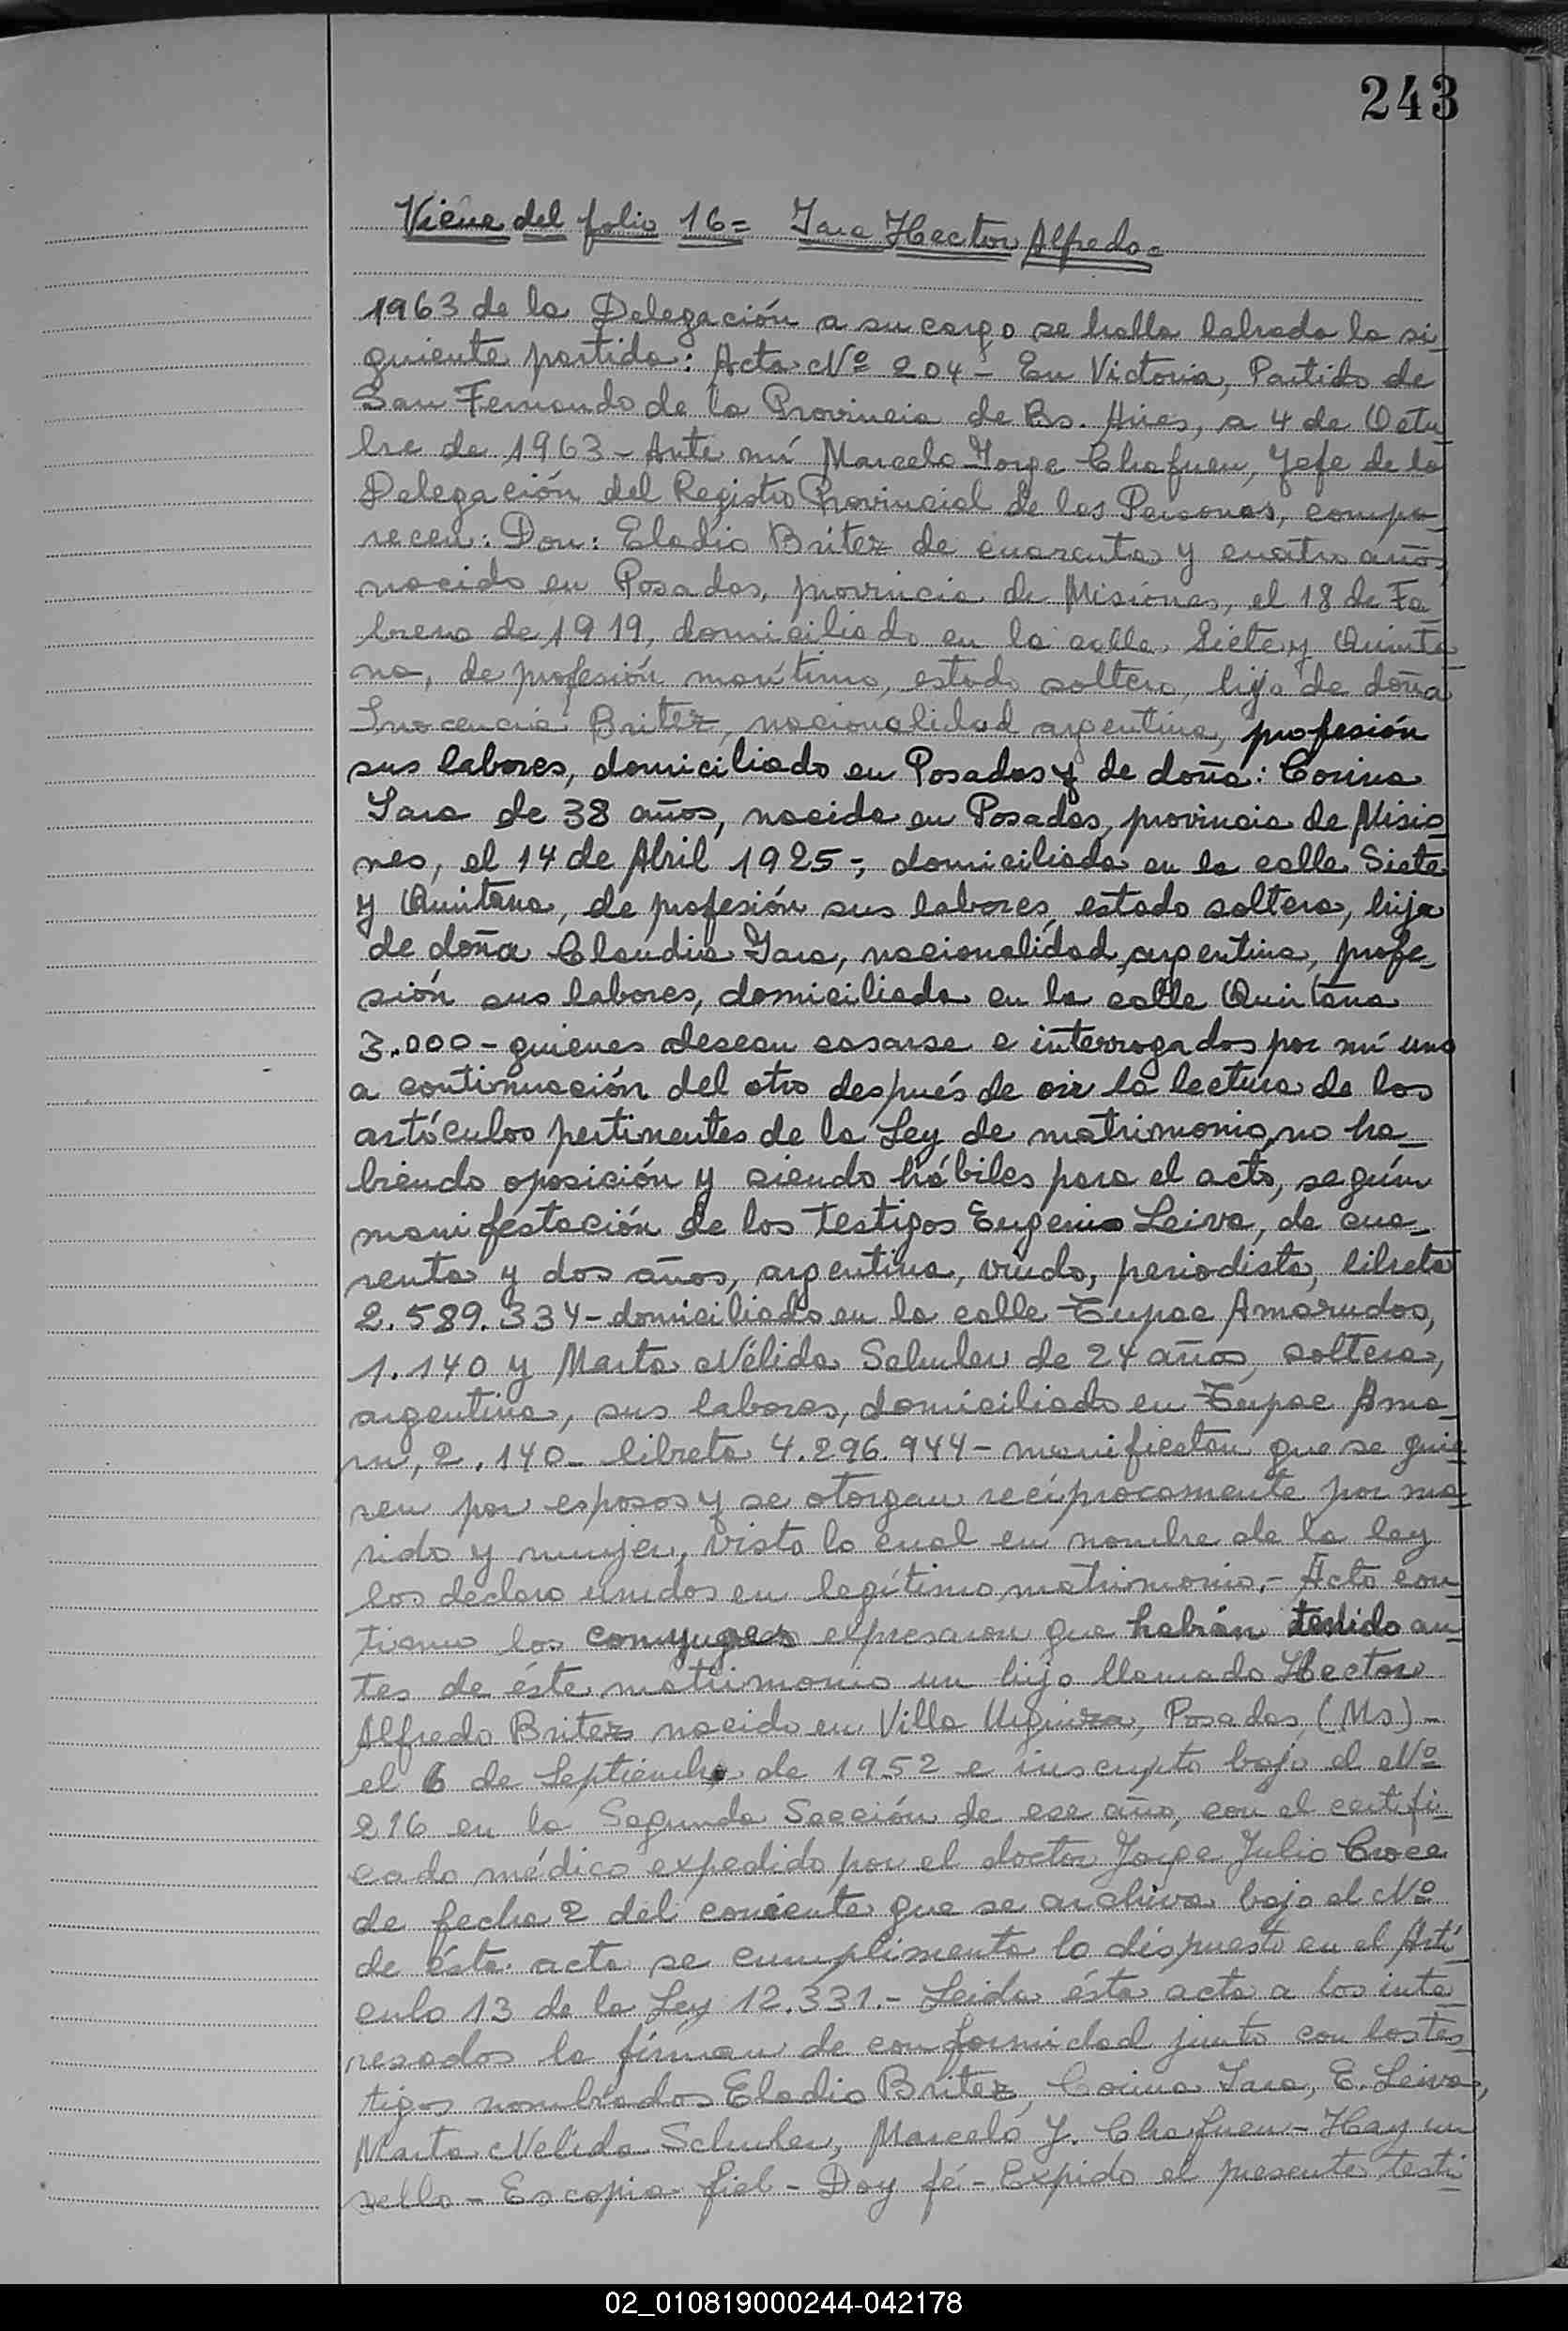 243
Viene del folio 16= Jara Hector Alfredo=
1963 de la Delegación a su cargo se halla labrada la si-
guiente partida: Acta Nº 204 - En Victoria, Partido de
San Fernando de la Provincia de Bs. Aires, a 4 de Octu-
bre de 1963 - Ante mí Marcelo Jorge Chafuen, Jefe de la
Delegación del Registro Provincial de las Personas, compa-
recen: Don: Eladio Britez de cuarenta y cuatro años,
nacido en Posadas, provincia de Misiones, el 18 de Fe-
brero de 1919, domiciliado en la calle Siete y Quinta-
na, de profesión marítimo, estado soltero, hijo de doña
Inocencia Britez, nacionalidad argentina, profesión
sus labores, domiciliado en Posadas y de doña: Corina
Jara de 38 años, nacida en Posadas, provincia de Misio-
nes, el 14 de Abril 1925-, domiciliada en la calle Siete
y Quintana, de profesión sus labores, estado soltera, hija
de doña Claudia Jara, nacionalidad argentina, profe-
sión sus labores, domiciliada en la calle Quintana
3.000 - quienes desean casarse e interrogados por mí uno
a continuación del otro después de oir la lectura de los
artículos pertinentes de la Ley de matrimonio, no ha-
biendo oposición y siendo hábiles para el acto, según
manifestación de los testigos Eugenio Leiva, de cua-
renta y dos años, argentino, viudo, periodista, libreta
2.589.334 - domiciliado en la calle Tupac Amarudos,
1.140 y Marta Nélida Schuler de 24 años, soltera,
argentina, sus labores, domiciliado en Tupac Ama-
ru, 2.140 - libreta 4.296.944 - manifiestan que se quie-
ren por esposos y se otorgan recíprocamente por ma-
rido y mujer, visto lo cual en nombre de la ley
los declaro unidos en legítimo matrimonio.- Acto con-
tinuo los conyuges expresaron que habían tenido an-
tes de éste matrimonio un hijo llamado Hector
Alfredo Britez nacido en Villa Urquiza, Posadas (Ms) -
el 6 de Septiembre de 1952 e inscripto bajo el Nº
216 en la Segunda Sección de ese año, con el certifi-
cado médico expedido por el doctor Jorge Julio Croce
de fecha 2 del corriente que se archiva bajo el Nº
de ésta acta se cumplimenta lo dispuesto en el Artí-
culo 13 de la Ley 12.331.- Leida ésta acta a los inte-
resados la firman de conformidad junto con los tes-
tigos nombrados Eladio Britez, Corina Jara, E. Leiva,
Marta Nelida Schuler, Marcelo J. Chafuen - Hay un
sello - Es copia fiel - Doy fé - Expido el presente testi-
02_010819000244-042178